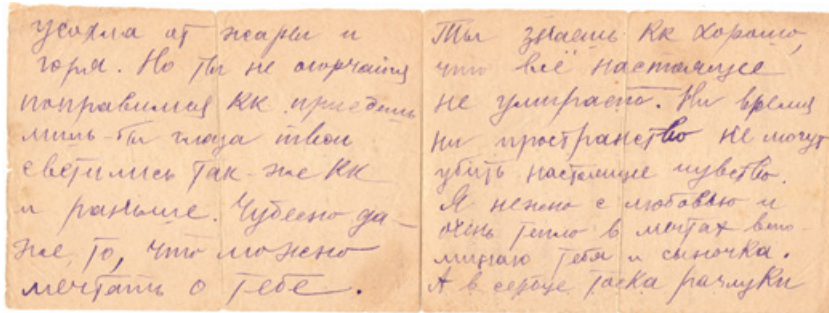 усохла от жары и
горя. Но ты не огорчайся
поправимся кк приедешь
лишь-бы глаза твои
светились так-же кк
и раньше. Чудесно да-
же, то, что можно
мечтать о тебе.
Ты знаешь кк хорошо,
что всё настоящее
не умирает. Ни время
ни пространство не могут
убить настоящие чувство.
Я нежно с любовью и
очень тепло в мечтах вспо-
минаю тебя и сыночка.
А в сердце тоска разлуки